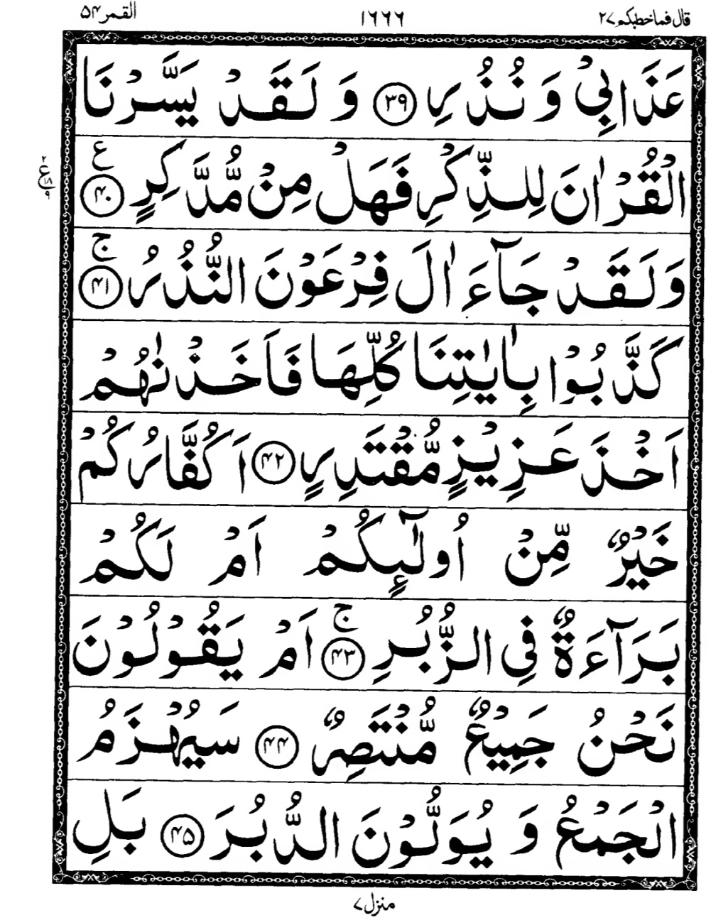 قال فما خطبكم ۲۷ ۱۶۶۶ القمر ۵۴
عَذَابِیْ وَ نُذُرِ ﴿۳۹﴾ وَ لَقَدْ یَسَّرْنَا
الْقُرْاٰنَ لِلذِّكْرِ فَهَلْ مِنْ مُّدَّكِرٍ ﴿۴۰﴾ ع
وَلَقَدْ جَآءَ اٰلَ فِرْعَوْنَ النُّذُرُ ﴿۴۱﴾ ج
كَذَّبُوْا بِاٰیٰتِنَا كُلِّهَا فَاَخَذْنٰهُمْ
اَخْذَ عَزِیْزٍ مُّقْتَدِرٍ ﴿۴۲﴾ اَكُفَّارُكُمْ
خَیْرٌ مِّنْ اُولٰٓىِٕكُمْ اَمْ لَكُمْ
بَرَآءَةٌ فِی الزُّبُرِ ﴿۴۳﴾ ج اَمْ یَقُوْلُوْنَ
نَحْنُ جَمِیْعٌ مُّنْتَصِرٌ ﴿۴۴﴾ سَیُهْزَمُ
الْجَمْعُ وَ یُوَلُّوْنَ الدُّبُرَ ﴿۴۵﴾ بَلِ
منزل ۷